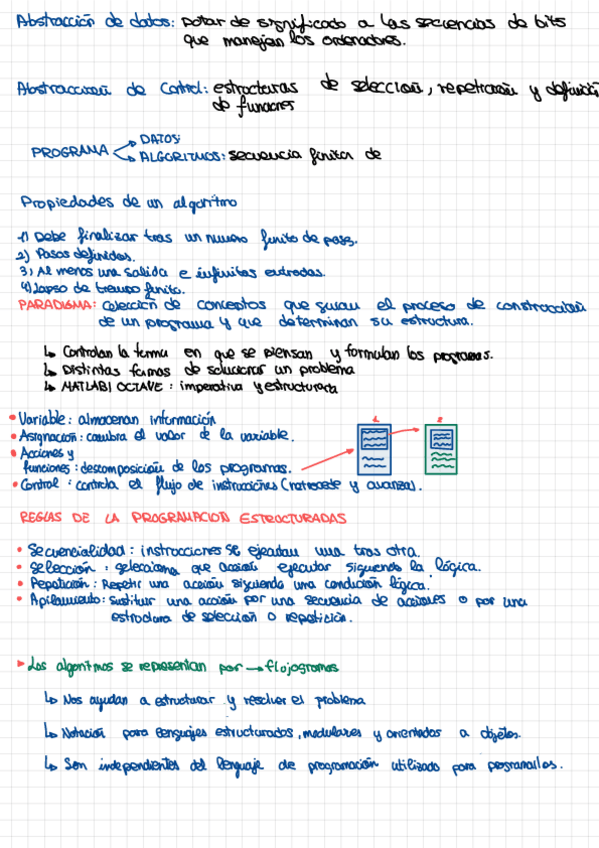 Abstracción de datos: dotar de significado a las secuencias de bits
que manejan los ordenadores.
Abstracción de Control: estructuras de selección, repetición y definición
de funciones
PROGRAMA
DATOS:
ALGORITMOS: secuencia finita de
Propiedades de un algoritmo
1) Debe finalizar tras un numero finito de pasos.
2) Pasos definidos.
3) Al menos una salida e infinitas entradas.
4) Lapso de tiempo finito.
PARADIGMA: colección de conceptos que guian el proceso de construcción
de un programa y que determinan su estructura.
↳ Controlan la forma en que se piensan y formulan los programas.
↳ Distintas formas de solucionar un problema
↳ MATLAB/ OCTAVE: imperativa y estructurada
• Variable: almacenan información
• Asignación: cambia el valor de la variable.
• Acciones y
funciones: descomposición de los programas.
• Control: controla el flujo de instrucciones (retrocede y avanza).
1 2
REGLAS DE LA PROGRAMACION ESTRUCTURADAS
• Secuencialidad: instrucciones se ejecutan una tras otra.
• Selección: selecciona que acción ejecutar siguiendo la lógica.
• Repetición: Repetir una acción siguiendo una condición lógica.
• Apilamiento: Sustituir una acción por una secuencia de acciones o por una
estructura de selección o repetición.
▸ Los algoritmos se representan por → flujogramas
↳ Nos ayudan a estructurar y resolver el problema
↳ Notación para lenguajes estructurados, modulares y orientados a objetos.
↳ Son independientes del lenguaje de programación utilizado para programarlos.